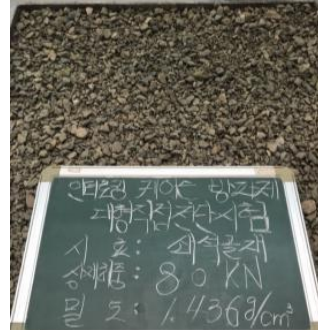 인터록킹 케이슨 방파제
대형직접전단시험
시 료: 쇄석골재
상재하중: 80 KN
밀 도: 1.436g/cm³